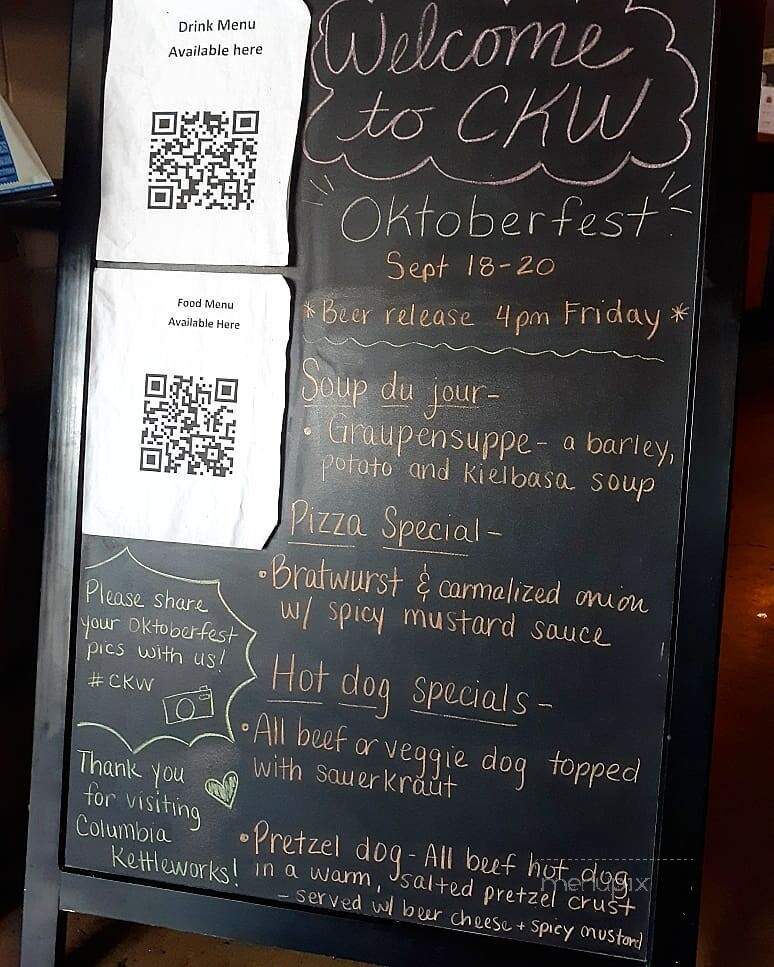 Drink Menu
Available here
Food Menu
Available Here
Welcome
to CKW
Oktoberfest
Sept 18-20
*Beer release 4pm Friday*
Soup du jour-
• Graupensuppe - a barley,
potato and Kielbasa soup
Pizza Special-
• Bratwurst & carmalized onion
w/ spicy mustard sauce
Hot dog specials-
• All beef or veggie dog topped
with sauerkraut
• Pretzel dog - All beef hot dog
in a warm, salted pretzel crust
- served w/ beer cheese + spicy mustard
Please share
your Oktoberfest
pics with us!
#CKW
Thank you
for visiting
Columbia
Kettleworks!
menupix